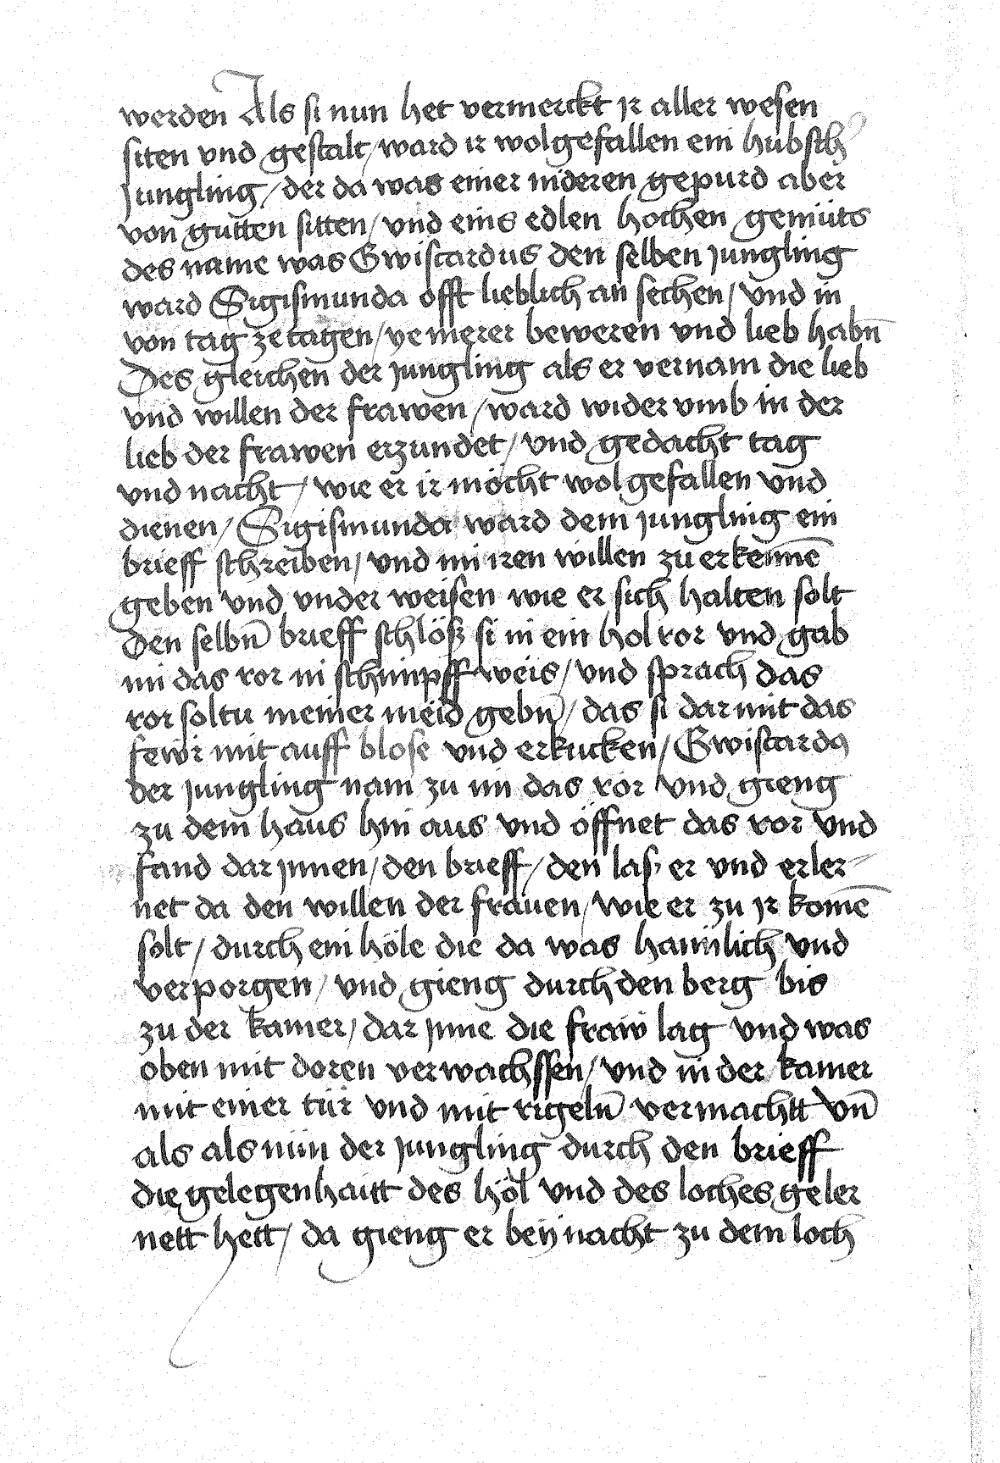 werden Als si nun het vermerckt ir aller wesen
siten vnd gestalt / ward ir wolgefallen ein hubsch
jungling / der da was einer nideren gepurd aber
von gutten sitten / vnd eins edlen hochen gemüts
des name was Gwiscardus den selben jungling
ward Sigismunda offt lieblich an sechen / vnd in
von tag ze tagen / ye merer beweren vnd lieb habn̄
Des gleichen der jungling als er vernam die lieb
vnd willen der frawen / ward wider vmb in der
lieb der frawen erzundet / vnd gedacht tag
vnd nacht / wie er ir möcht wol gefallen vnd
dienen / Sigismunda ward dem jungling ein
brieff schreiben / vnd im iren willen zu erkennē
geben vnd vnder weisen wie er sich halten solt
den selbn̄ brieff schlöß si in ein hol ror vnd gab
im das ror in schimpff weis / vnd sprach das
ror soltu meiner meid gebn̄ / das si dar mit das
fewr mit auff blose vnd erkucken / Gwiscardꝰ
der jungling nam zu im das ror vnd gieng
zu dem haus hin aus vnd öffnet das ror vnd
fand dar jnnen / den brieff / den las er vnd erler-
net da den willen der frauen / wie er zu ir komē
solt / durch ein höle die da was haimlich vnd
verporgen / vnd gieng durch den berg bis
zu der kamer / dar jnne die fraw lag vnd was
oben mit doren verwachssen / vnd in der kamer
mit einer tür vnd mit rigeln̄ vermachtt vn̄
als als nün der jungling durch den brieff
die gelegenhaitt des höl vnd des loches geler
nett hett / da gieng er beÿ nacht zu dem loch